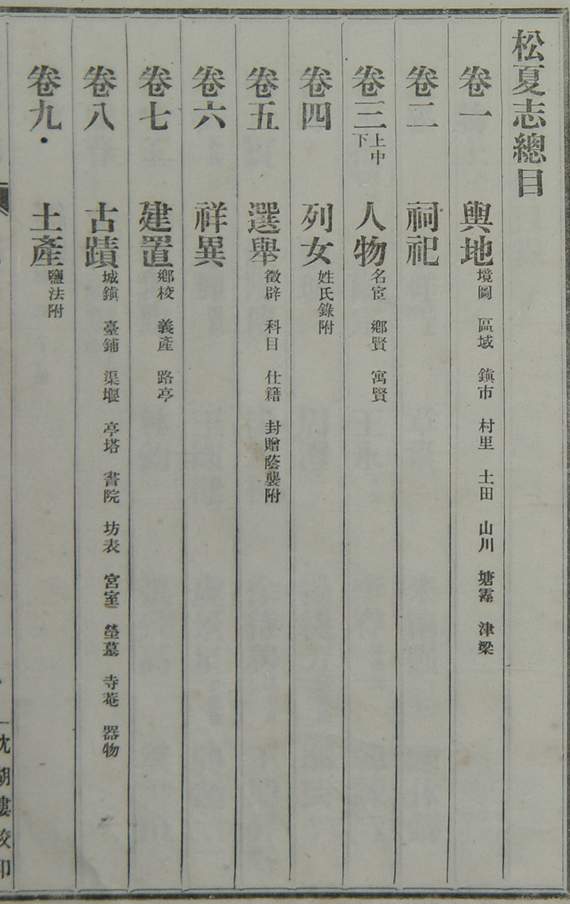 松夏志總目
卷一 輿地 境圖 區域 鎮市 村里 土田 山川 塘霪 津梁
卷二 祠祀
卷三 上中下 人物 名宦 鄉賢 寓賢
卷四 列女 姓氏錄附
卷五 選舉 徵辟 科目 仕籍 封贈蔭襲附
卷六 祥異
卷七 建置 鄉校 義產 路亭
卷八 古蹟 城鎮 臺鋪 渠堰 亭塔 書院 坊表 宮室 塋墓 寺菴 器物
卷九 土產 鹽法附
枕湖樓校印